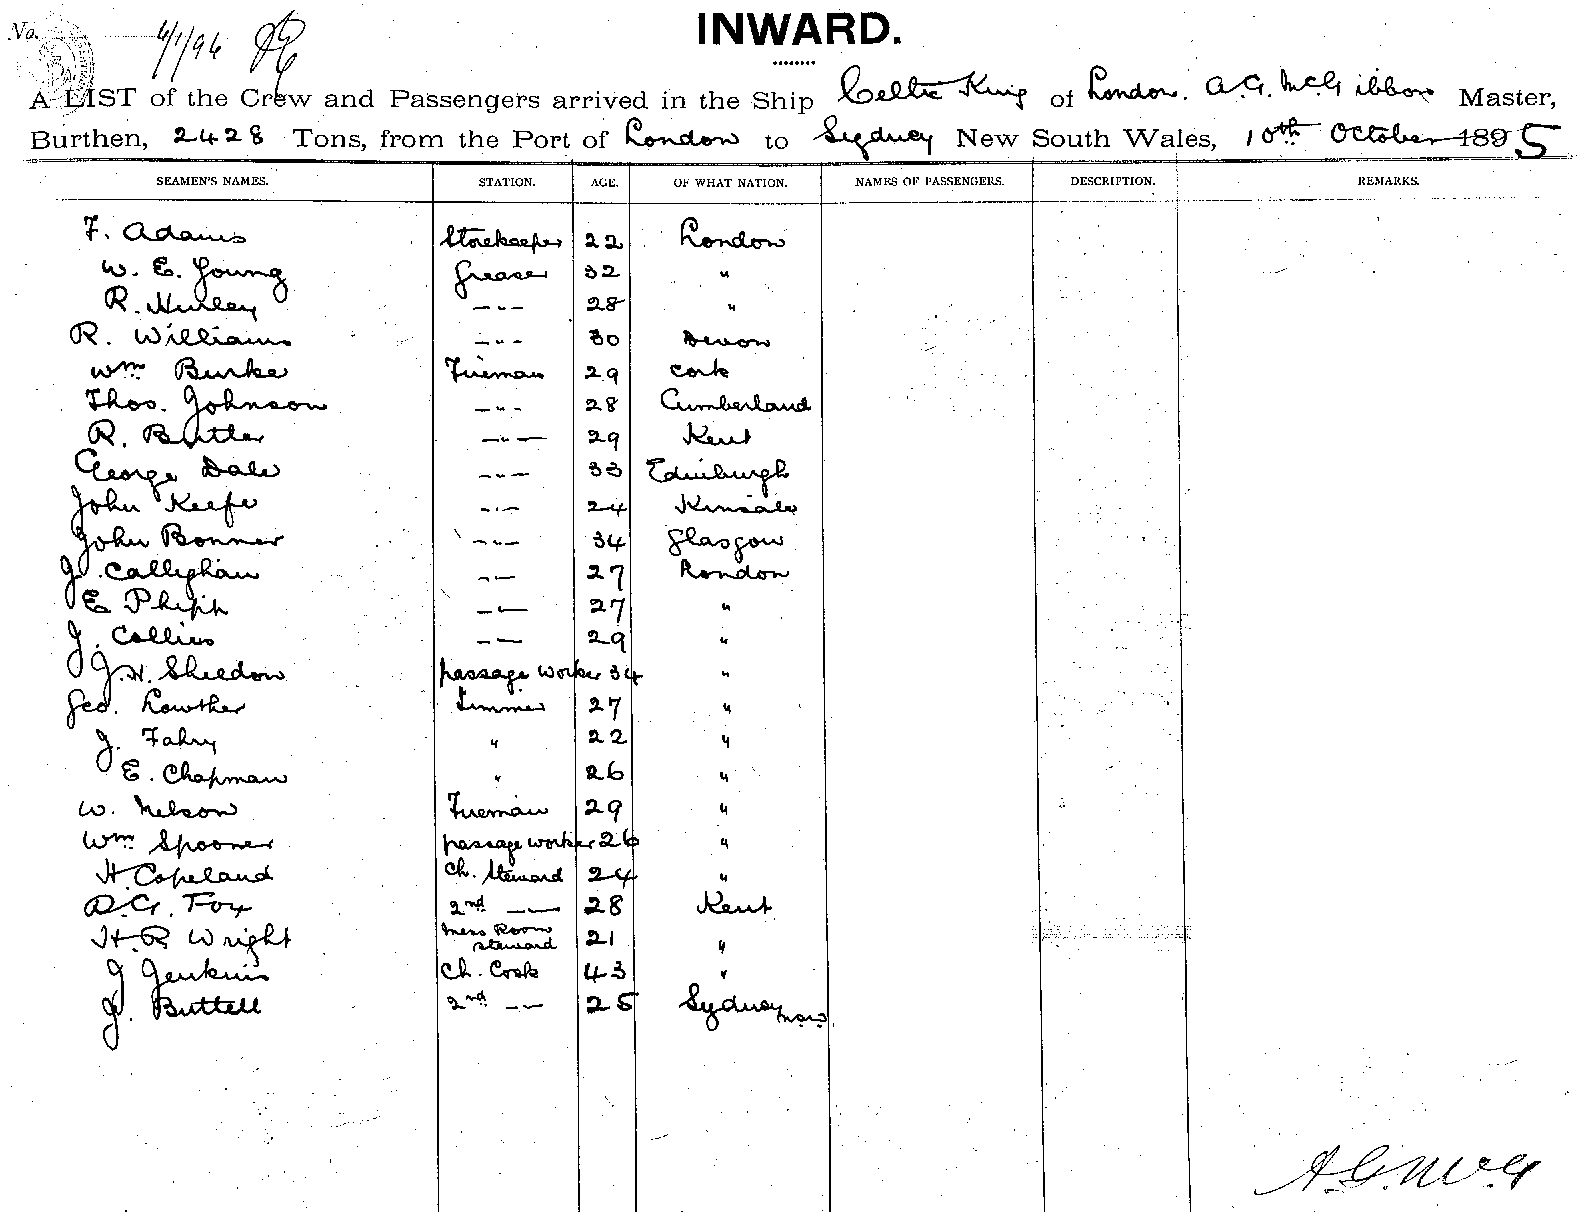 No. 6/1/96
INWARD.
A LIST of the Crew and Passengers arrived in the Ship Celtic King of London. A.G. McGibbon Master,
Burthen, 2428 Tons, from the Port of London to Sydney New South Wales, 10th October 1895
SEAMEN'S NAMES. STATION. AGE. OF WHAT NATION. NAMES OF PASSENGERS. DESCRIPTION. REMARKS.
F. Adams Storekeeper 22 London
W. E. Young Greaser 32 "
R. Hurley —"— 28 "
R. Williams —"— 30 Devon
Wm Burke Fireman 29 Cork
Thos. Johnson —"— 28 Cumberland
R. Buttler —"— 29 Kent
George Dale —"— 33 Edinburgh
John Keefe —"— 24 Kinsale
John Bonner —"— 34 Glasgow
J. Callighan —"— 27 London
E Phipp —"— 27 "
J. Collins —"— 29 "
J. H. Sheldon passage worker 34 "
Geo. Lowther Trimmer 27 "
J. Fahy " 22 "
E. Chapman " 26 "
W. Nelson Fireman 29 "
Wm Spooner passage worker 26 "
H. Copeland Ch. Steward 24 "
D. G. Fox 2nd —"— 28 Kent
H. R. Wright Mess Room Steward 21 "
J Jenkins Ch. Cook 43 "
J. Buttell 2nd —"— 25 Sydney NSW
A. G. McG